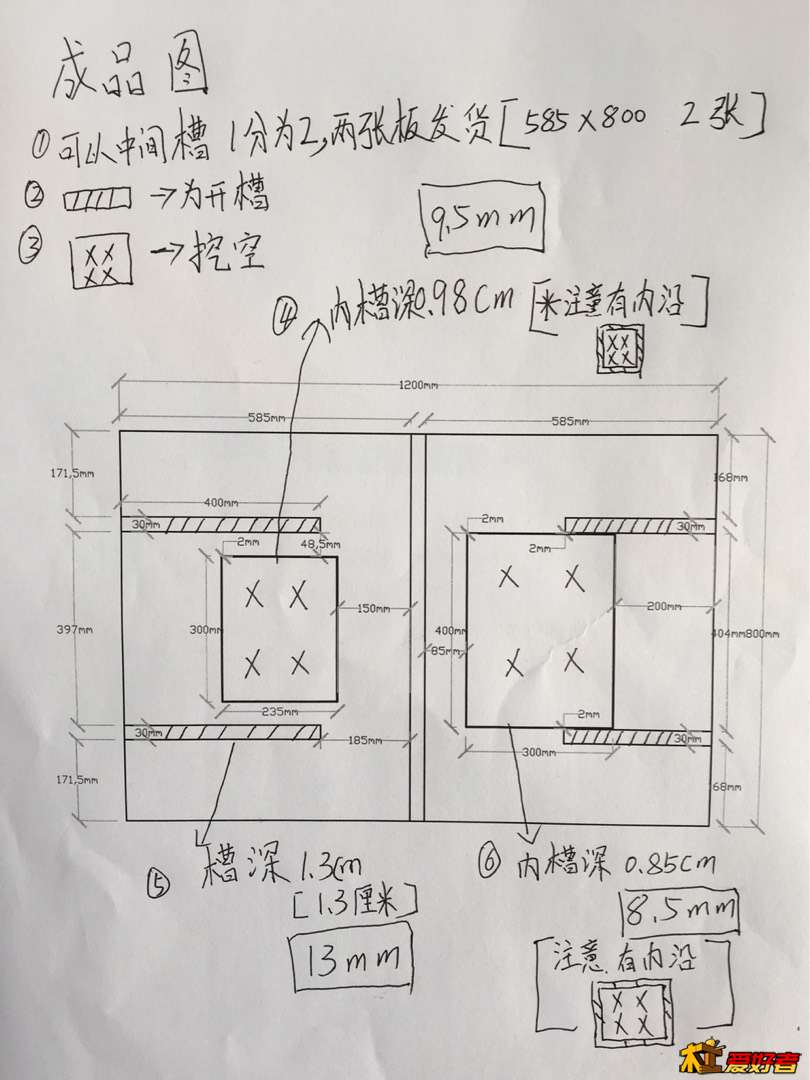 成品图
①可以中间槽1分为2,两张板发货[585×800 2张]
② →为开槽
9.5mm
③ XX XX →挖空
④内槽深0.98cm [米注意有内沿]
XX
XX
1200mm
585mm 585mm
171,5mm 168mm
400mm
30mm 2mm 30mm
2mm 48,5mm 2mm
X X X X
300mm 150mm 200mm
397mm 400mm 404mm 800mm
85mm
X X X X
235mm 2mm
30mm 185mm 30mm
300mm
171,5mm 68mm
⑤槽深1.3cm
[1.3厘米]
13mm
⑥内槽深 0.85cm
8.5mm
注意、有内沿
XX
XX
木工爱好者